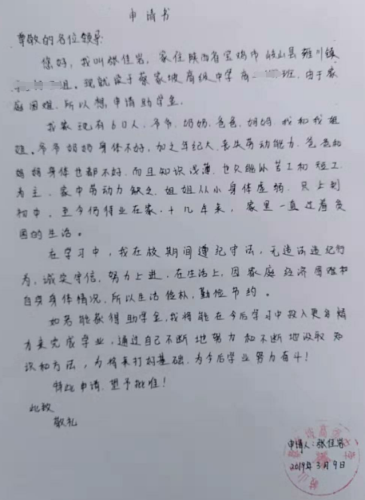 申请书
尊敬的各位领导
您好，我叫张佳岩，家住陕西省宝鸡市岐山县雍川镇
组。现就读于蔡家坡高级中学高 班，由于家
庭困难，所以想申请助学金。
我家现有6口人，爷爷，奶奶，爸爸，妈妈 我和我姐
姐。爷爷 奶奶 身体不好，加之年纪大 丧失劳动能力，爸爸和
妈妈身体也都不好，而且知识浅薄，也只能以苦工和短工
为主，家中劳动力缺乏，姐姐从小身体虚弱，只上到
初中，至今仍待业在家，十几年来，家里一直过着贫
困的生活。
在学习中，我在校期间遵纪守法，无违法违纪行
为，诚实守信，努力上进，在生活上，因家庭经济困难和
自身身体情况，所以生活俭朴，勤俭节约。
如若能获得助学金，我将能在今后学习中投入更多精
力来完成学业，通过自己不断地努力和不断地汲取知
识和方法，为将来打好基础，为今后学业努力奋斗！
特此申请，望予批准！
此致
敬礼
申请人：张佳岩
2019年3月9日